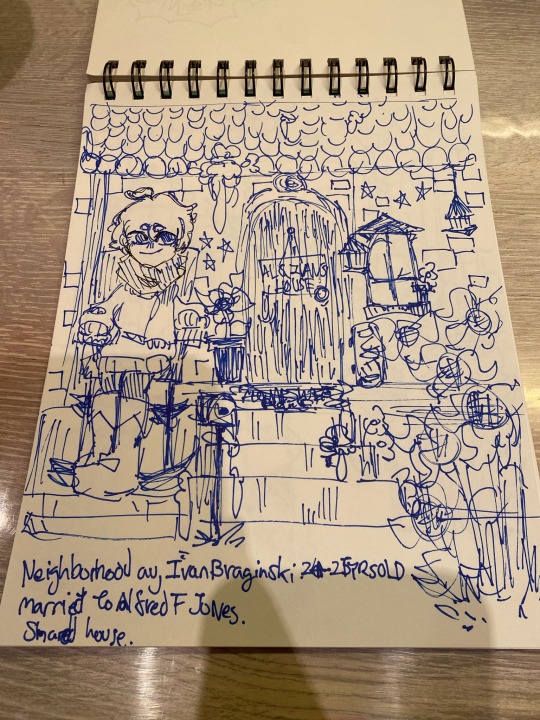 AL & IVANS
HOUSE
Neighborhood au, Ivan Braginski: 24-25YRSOLD
married to Alfred F Jones.
Shared house.